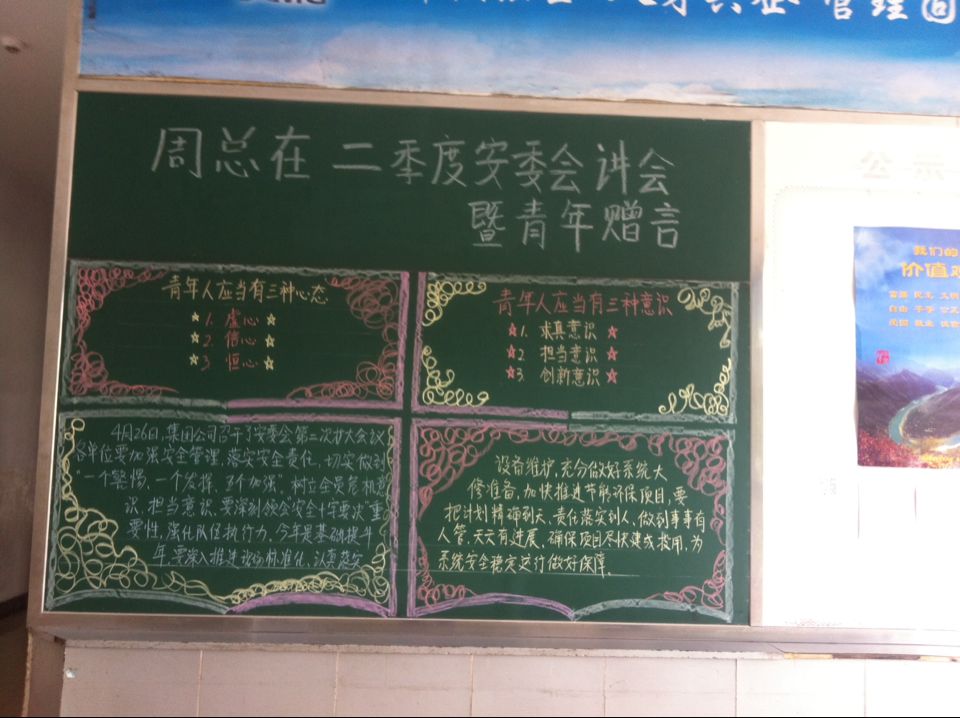 管理
周总在二季度安委会讲会
暨青年赠言
青年人应当有三种心态
1. 虚心
2. 信心
3 恒心
青年人应当有三种意识
1. 求真意识
2 担当意识
3. 创新意识
4月26日,集团公司召开了安委会第二次扩大会议
各单位要加强安全管理,落实安全责任,切实做到
"一个警惕,一个发挥,3个加强"树立全员危机意
识,担当意识,要深刻领会安全十年要决"重
要性,强化队伍执行力,今年是基础提升
年,要深入推进现场标准化,认真落实
设备维护,充分做好系统大
修准备,加快推进节能环保项目,要
把计划精确到天,责任落实到人,做到事事有
人管,天天有进展,确保项目尽快建成投用,为
系统安全稳定运行做好保障
公示
我们的
价值观
富强 民主 文明
自由 平等 公正
爱国 敬业 诚信